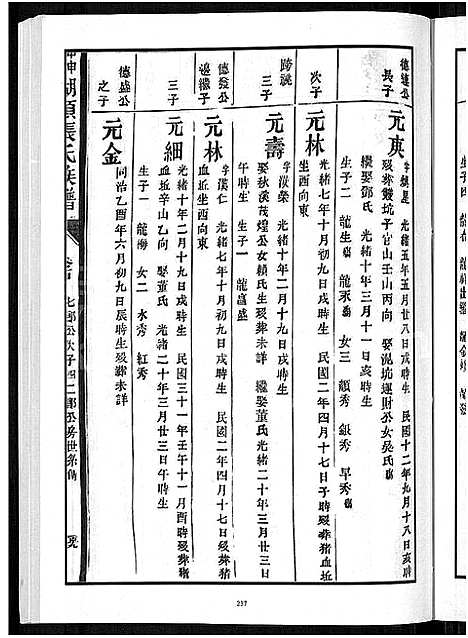 德逵公
長子
元庚
字 光緒五年五月廿八日戌時生 民國十二年九月十八日戌時
歿葬雙坑子官山壬山丙向 娶泥坑運財公女吳氏
繼娶鄧氏 光緒十年三月十一日亥時生
生子二 龍生 龍永 女三 顏秀 銀秀 早秀
次子
元林
字漢仁 光緒七年十月初九日戌時生 民國二年四月十七日子時歿葬豬血坵
坐西向東
跨說
三子
元壽
字漢榮 光緒十年二月十九日戌時生
娶秋溪茂煌公女賴氏生歿葬未詳 繼娶董氏光緒二十年三月廿三日
午時生 生子一 龍盛
德發公
過繼子
元林
字漢仁 光緒七年十月初九日戌時生 民國二年四月十七日歿葬豬
血坵坐西向東
三子
元細
光緒十年二月十九日戌時生 民國三十一年壬午十一月酉時歿葬豬
血坵辛山乙向 娶董氏 光緒二十年三月廿三日午時生
生子一 龍海 女二 水秀 紅秀
德盛公
之子
元金
同治乙酉年六月初九日辰時生歿葬未詳
湖頭張氏族譜
七郎公次子四二郎公房世系
237